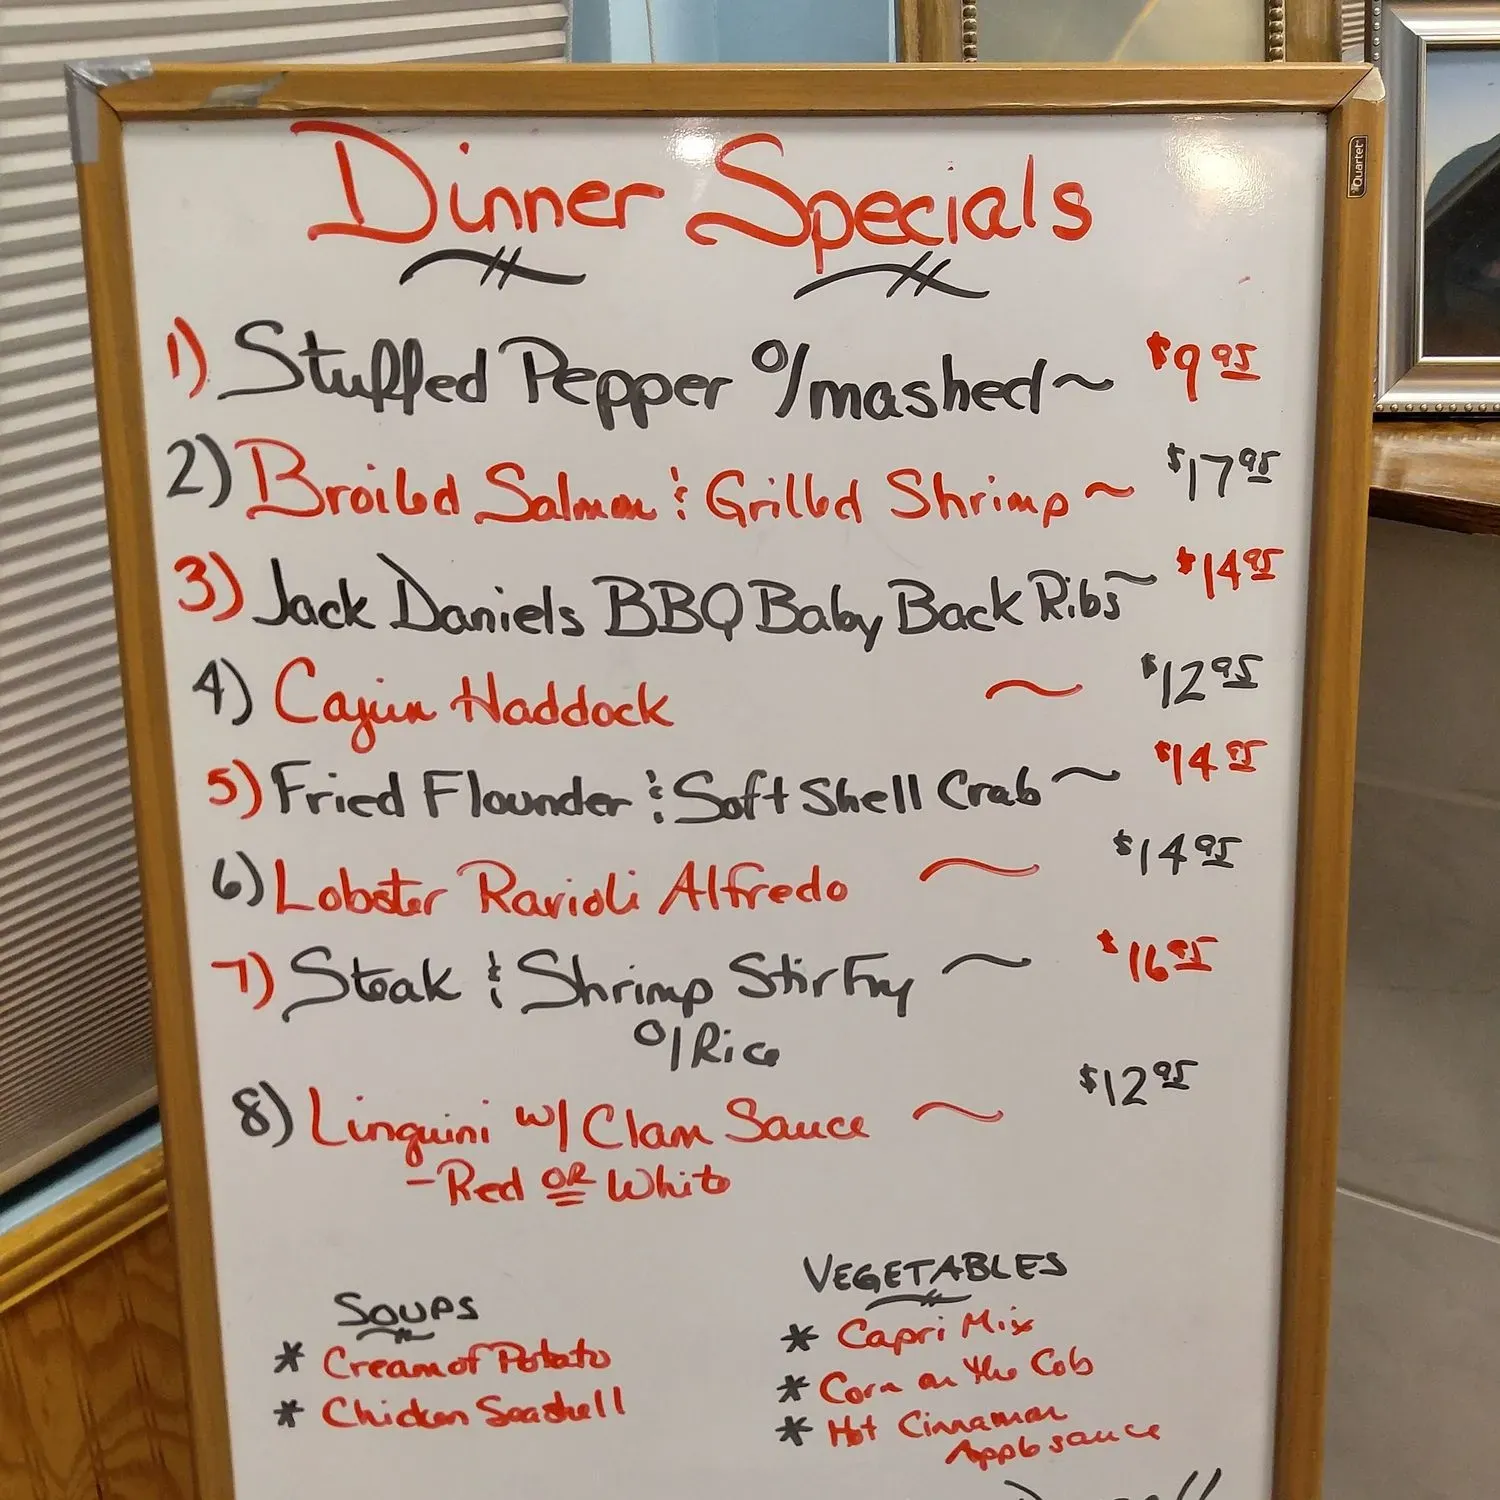 Dinner Specials
Quartet
1) Stuffed Pepper o/mashed ~ $9.95
2) Broiled Salmon & Grilled Shrimp ~ $17.95
3) Jack Daniels BBQ Baby Back Ribs ~ $14.95
4) Cajun Haddock ~ $12.95
5) Fried Flounder & Soft Shell Crab ~ $14.95
6) Lobster Ravioli Alfredo ~ $14.95
7) Steak & Shrimp Stir Fry ~ $16.95
o/Rice
8) Linguini w/ Clam Sauce ~ $12.95
- Red OR White
SOUPS
* Cream of Potato
* Chicken Seashell
VEGETABLES
* Capri Mix
* Corn on the Cob
* Hot Cinnamon
Applesauce